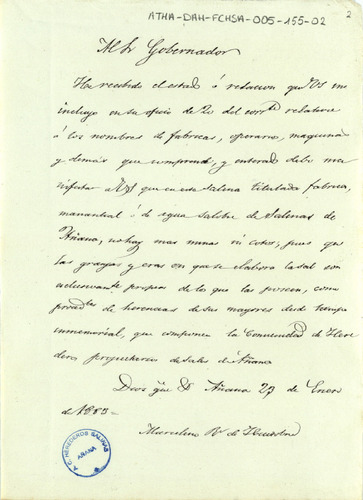 ATHA-DAH-FCHSA-005-155-02
2
M. I. Sr. Gobernador
He recibido el estado ó relacion que VS me
incluyo en su oficio de 20 del corrte relativo
á los nombres de fabricas, operarios, maquinas
y demás que comprende, y enterado debo ma
nifestar á VS que en esta Salina titulada fabrica,
manantial ó de agua salobre de Salinas de
Añana, no hay mas minas ni cotos; pues que
las granjas y eras en que se elabora la sal son
esclusivamente propias de los que las poseen, como
procedtes de herencias de sus mayores desde tiempo
inmemorial, que componen la Comunidad de Here
deros propietarios de sales de Añana
Dios gue á VS Añana 27 de Enero
de 1883=
Marcelino Rz de
A. C. HEREDEROS SALINAS
AÑANA